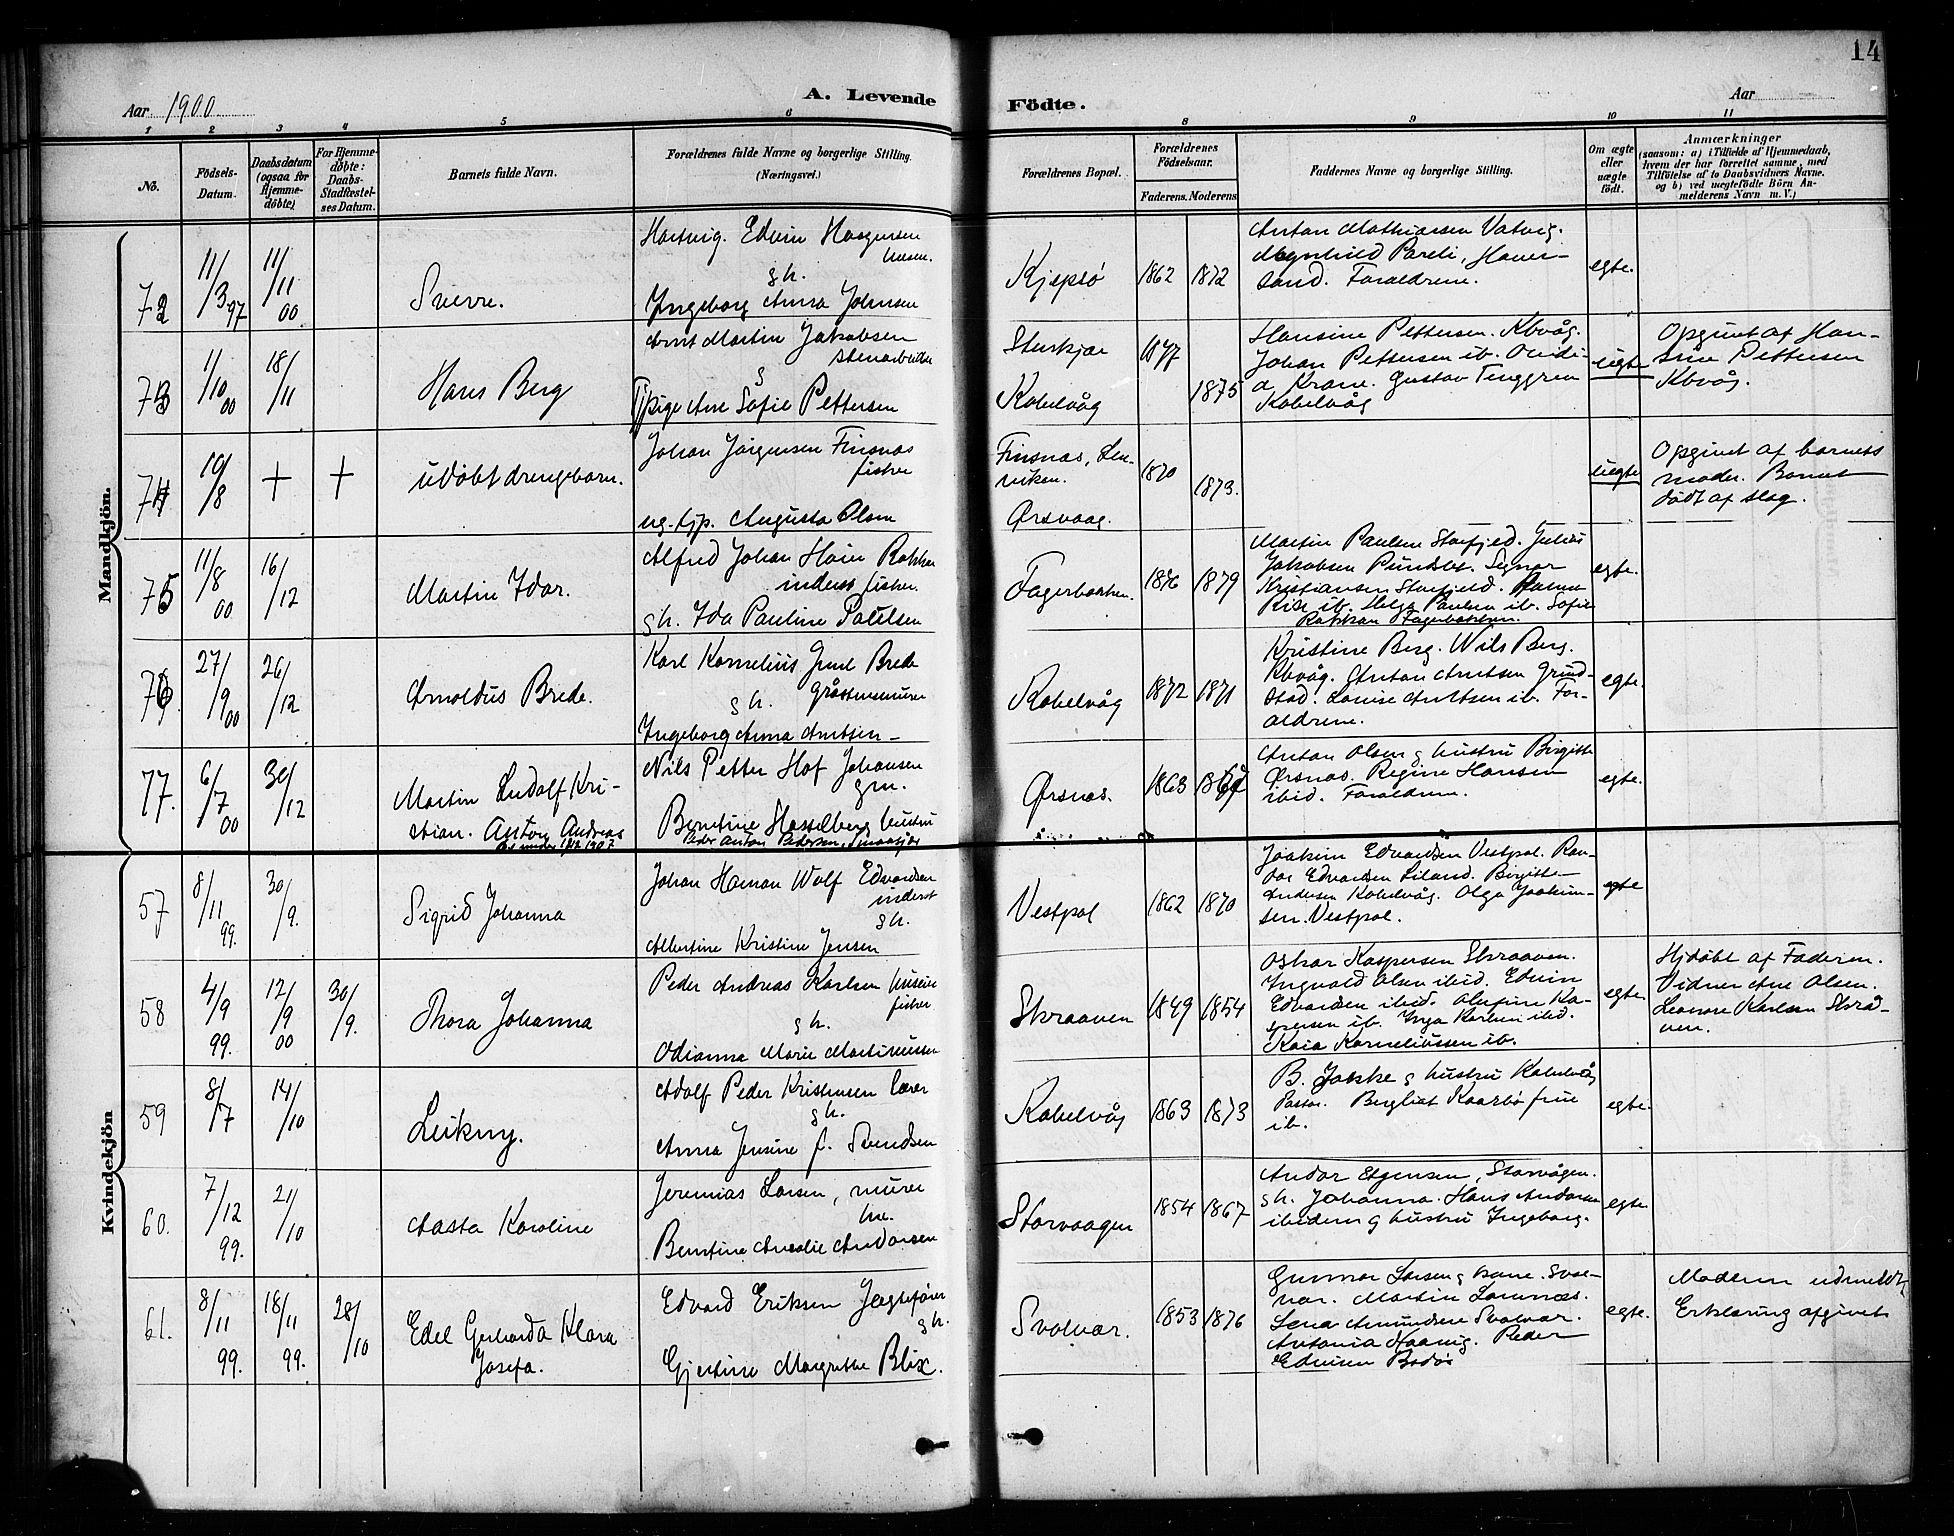 14
Aar 1900
A. Levende
Födte.
Aar
1 2 3 4 5 6 8 9 10 11
No.
Födsels-
Datum.
Daabsdatum
(ogsaa for
Hjemme-
döbte)
For Hjemme-
döbte:
Daabs-
Stadfæstel-
ses Datum.
Barnets fulde Navn.
Forældrenes fulde Navne og borgerlige Stilling.
(Næringsvei.)
Forældrenes Bopæl.
Forældrenes
Födselsaar.
Faderens. Moderens
Faddernes Navne og borgerlige Stilling.
Om ægte
eller
uægte
födt.
Anmærkninger
(saasom: a) i Tilfælde af Hjemmedaab,
hvem der har forrettet samme, med
Tilföielse af to Daabsvidners Navne.
og b) ved uegtefödte Börn An-
melderens Navn m. V.)
Mandkjön.
72
11/3 97
11/11 00
Sverre.
Hartvig. Edvin Haagensen
husm.
g h.
Ingeborg Anna Johnsen
Kjepsø
1862 1872
Anton Mathiasen Vatvig.
Magnhild Pareli, Haver-
sand. Forældrene.
egte.
73
1/10 00
18/11
Hans Berg
Arnt Martin Jakobsen
stenarbeider
g
Tjpige Ane Sofie Pettersen
Stenkjær
Kabelvåg
1877
1875
Hansine Pettersen. Kbvåg.
Johan Pettersen ib. Ovidi-
a Krane. Gustav Tenggren
Kabelvåg
uegte
Opgivet af Han-
sine Pettersen
Kbvåg.
74
19/8
+ +
udøbt drengebarn.
Johan Jörgensen Finsnæs
fisker
ug. tjp. Augusta Olsen
Finsnæs, Len-
viken.
Ørsvaag.
1870
1873.
uegte
Opgivet af barnets
moder. Barnet
dødt af slag.
75
11/8 00
16/12
Martin Idar.
Alfred Johan Hein Rokkan
inderst fisker.
g h. Ida Pauline Paulsen
Fagerbakken.
1876 1879
Martin Paulsen Storfjeld. Julius
Jakobsen Pundslet. Signar
Kristiansen Storfjeld.
Rise ib. Helga Paulsen ib. Sofie
Rokkan Fagerbakken.
egte.
76
27/9 00
26/12
Arnoldus Brede.
Karl Kornelius Juul Brede
gråstensmurer
g h.
Ingeborg Anna Arntsen
Kabelvåg
1872 1871
Kristine Berg. Nils Berg.
Kbvåg. Anton Arntsen Grund-
stad. Louise Arntsen ib. For-
ældrene.
egte.
77.
6/7 00
30/12
Martin Ludolf Kri-
stian. Anton Andreas
Nils Petter Hof Johansen
grm.
Berntine Hasselberg hustru
Peder Anton Pedersen,
Ørsnæs.
1863
Anton Olsen g hustru Birgitte
Ørsnæs. Regine Hansen
ibid. Forældrene.
egte.
Kvindekjön
57
8/11 99.
30/9.
Sigrid Johanna
Johan Haman Wolf Edvardsen
inderst
g h.
Albertine Kristine Jensen
Vestpol
1862 1870
Joakim Edvardsen Vestpol. Ran-
dor Edvardsen Liland. Birgitte
Andersen Kabelvåg. Olga Joakim-
sen. Vestpol.
egte
58
4/9 99.
12/9 00
30/9.
Thora Johanna
Peder Andreas Karlsen huseier
fisker
g h.
Odianna Marie Martinussen
Skraaven
1849 1854
Oskar Kaspersen Skraaven.
Ingvald Olsen ibid. Edvin
Edvardsen ibid. Olufine Ka-
spersen ib. Inga Karlsen ibid.
Kaia Korneliussen ib.
egte.
Hjdøbt af Faderen.
Vidner Ane Olsen.
Leonore Karlsen Skrå-
ven.
59
8/7
14/10
Leikny.
Adolf Peder Kristensen lærer
g h.
Anna Jensine f. Svendsen
Kabelvåg
1863 1873
B. Jakske g hustru Kabelvåg
Pastor. Bergliot Kaarbø frue
ib.
egte.
60.
7/12 99.
21/10
Aasta Karoline
Jeremias Larsen, murer
hu.
Berntine Amalie Andorsen
Storvaagen
1854 1867
Andor Espensen, Storvågen.
g h. Johanna. Hans Andorsen
ibidem g hustru Ingeborg.
egte.
61.
8/11 99.
18/11 99.
28/10
Edel Gerharda Klara
Josefa.
Edvard Eriksen Jægtefører
g h.
Gjertine Margrethe Blix.
Svolvær.
1853 1876
Gunnar Larsen g kone. Svol-
vær. Martin Lamnæs.
Lena Amundsen Svolvær.
Antonia Haavig. Peder
Edvinsen Bodø
egte.
Moderen udmeldt,
Erklæring afgivet